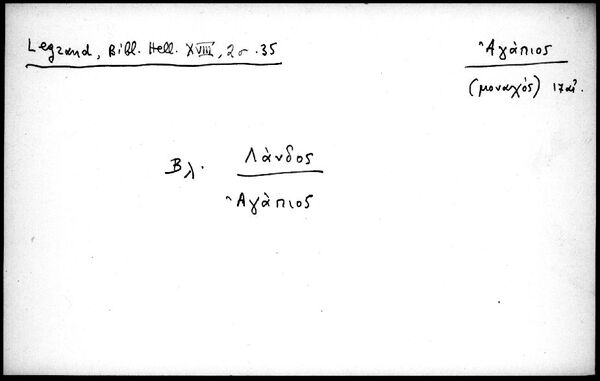 Legrand, Bibl. Hell. XVIII, 2 σ. 35
Ἀγάπιος
(μοναχός) 17 αἰ.
Βλ. Λάνδος
Ἀγάπιος